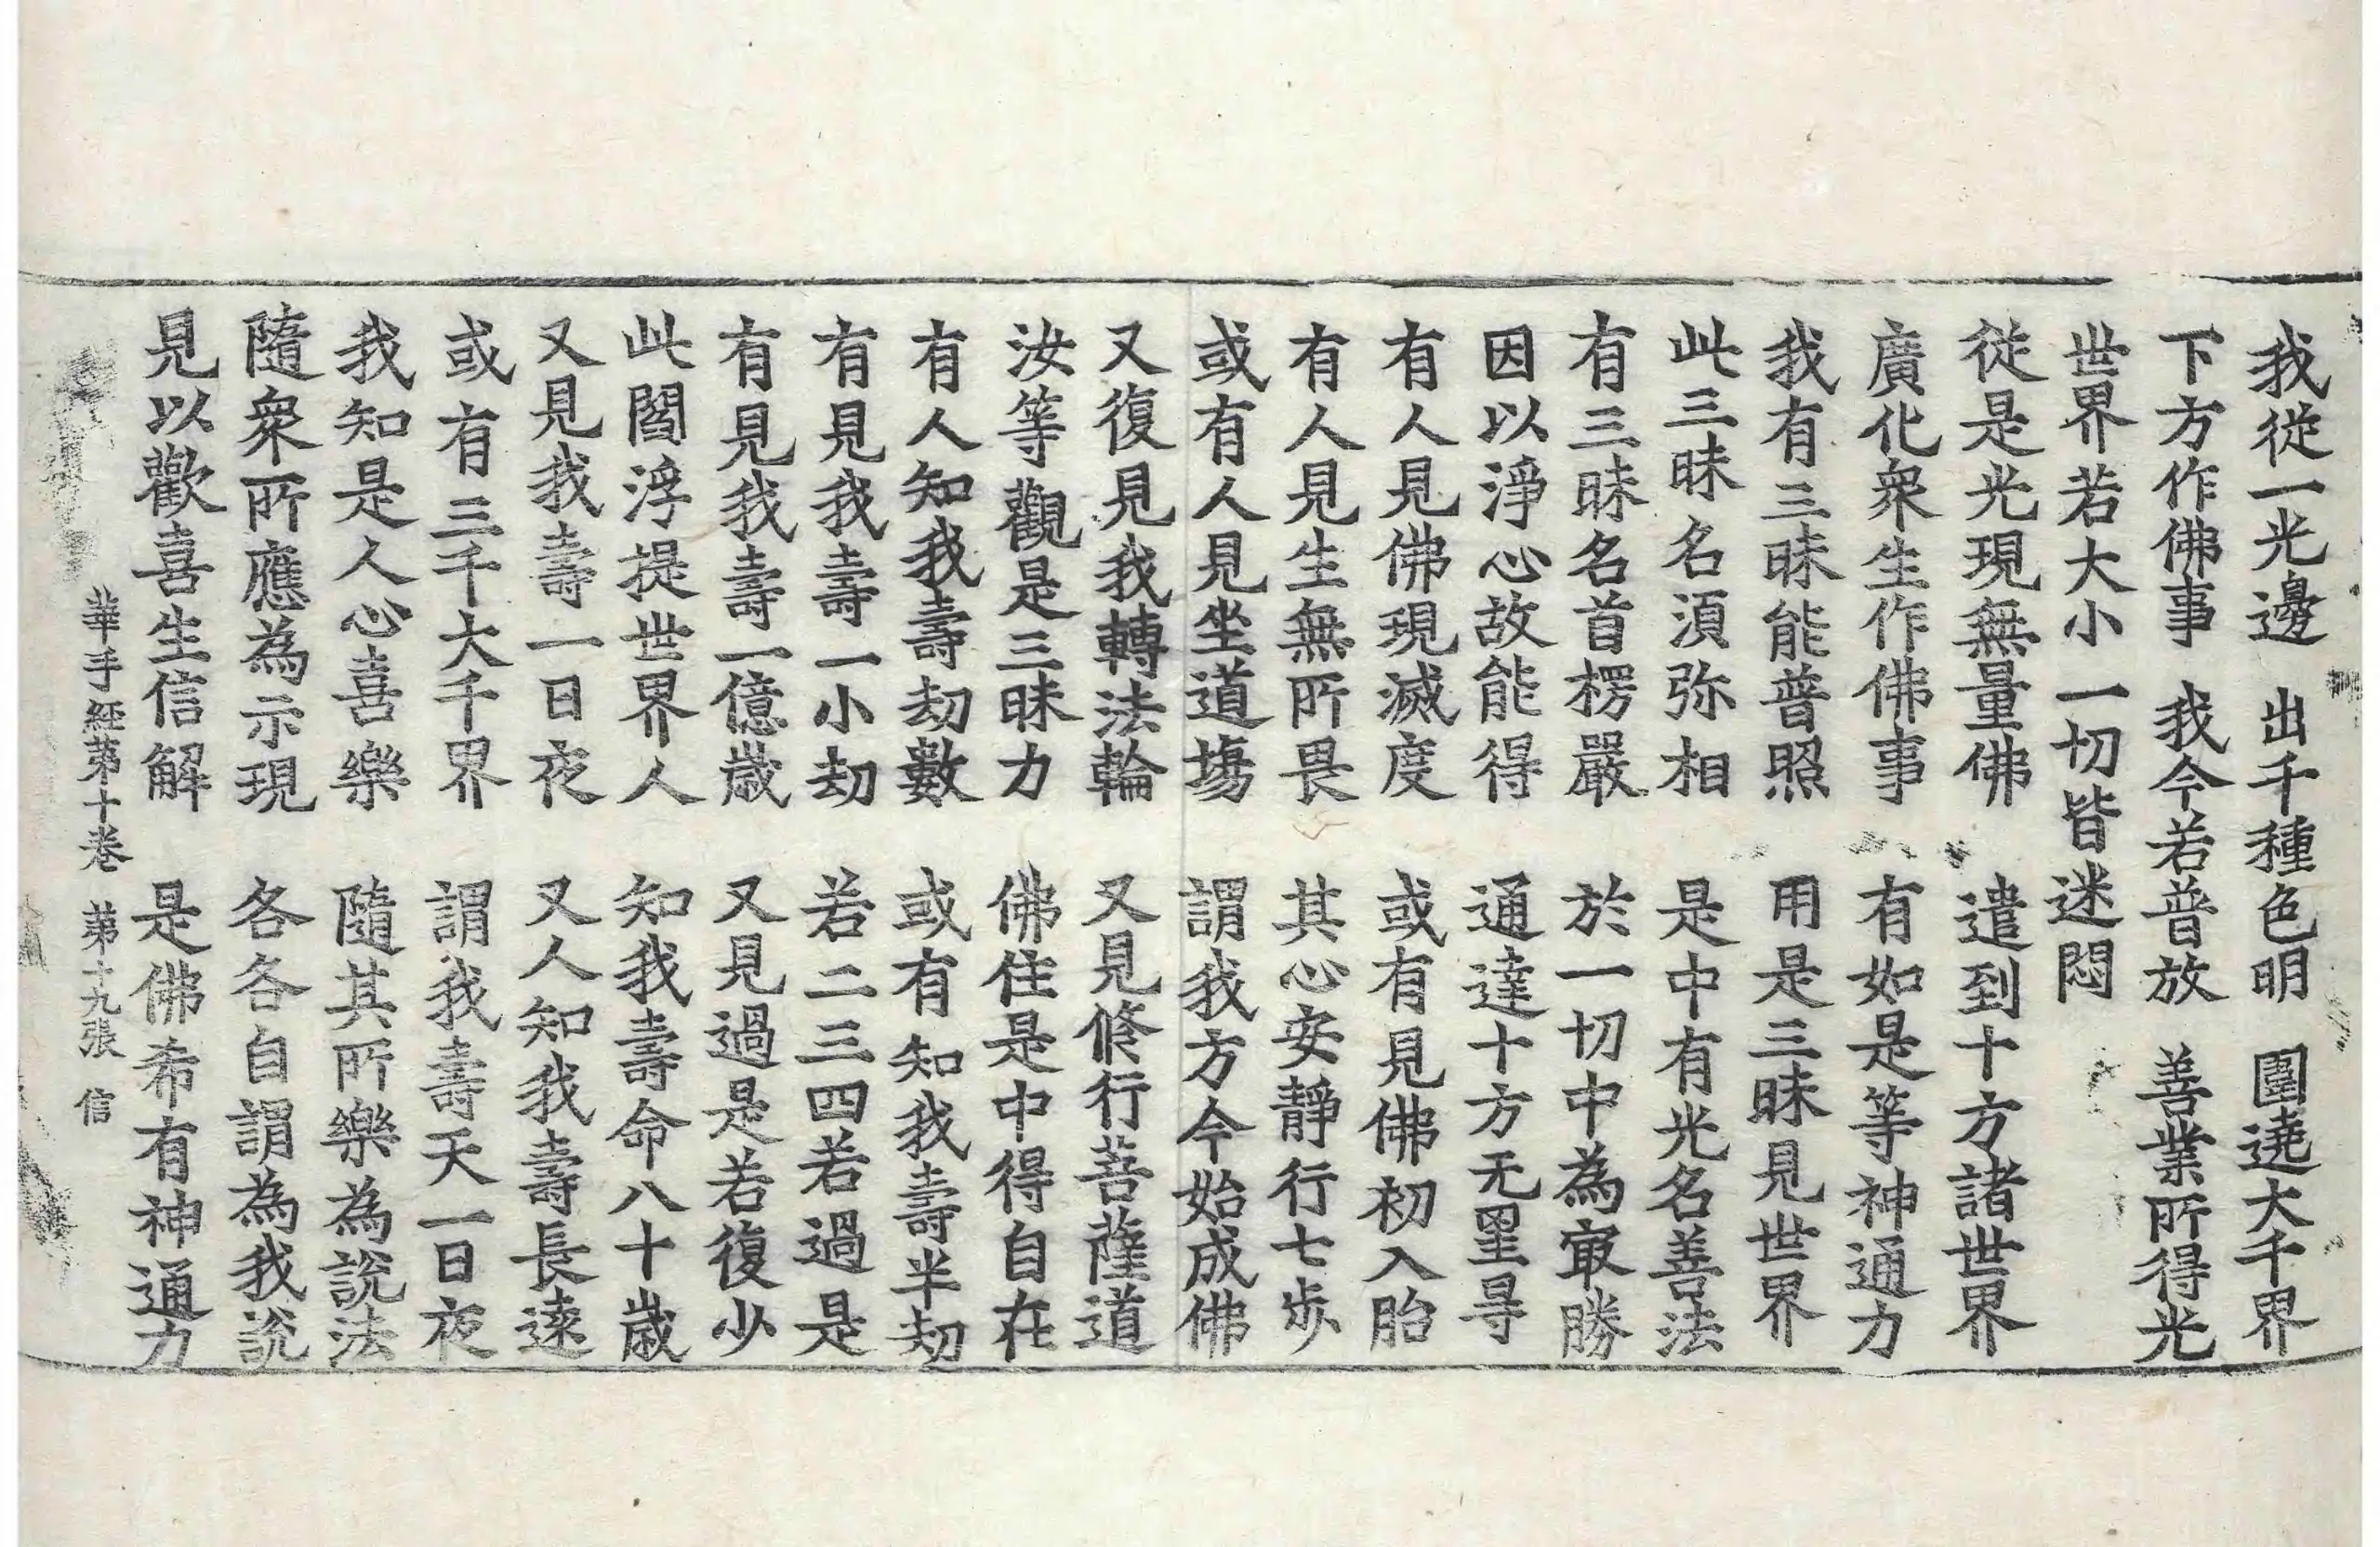 我從一光邊　出千種色明　圍遶大千界
下方作佛事　我今若普放　善業所得光
世界若大小　一切皆迷悶
從是光現無量佛　遣到十方諸世界
廣化衆生作佛事　有如是等神通力
我有三昧能普照　用是三昧見世界
此三昧名須弥相　是中有光名善法
有三昧名首楞嚴　於一切中為㝡勝
因以淨心故能得　通達十方无罣㝵
有人見佛現滅度　或有見佛初入胎
有人見生無所畏　其心安靜行七步
或有人見坐道場　謂我方今始成佛
又復見我轉法輪　又見修行菩薩道
汝等觀是三昧力　佛住是中得自在
有人知我壽劫數　或有知我壽半劫
有見我壽一小劫　若二三四若過是
有見我壽一億歲　又見過是若復少
此閻浮提世界人　知我壽命八十歲
又見我壽一日夜　又人知我壽長遠
或有三千大千界　謂我壽天一日夜
我知是人心喜樂　隨其所樂為說法
隨衆所應為示現　各各自謂為我說
見以歡喜生信解　是佛希有神通力
華手經第十卷　第十九張　信